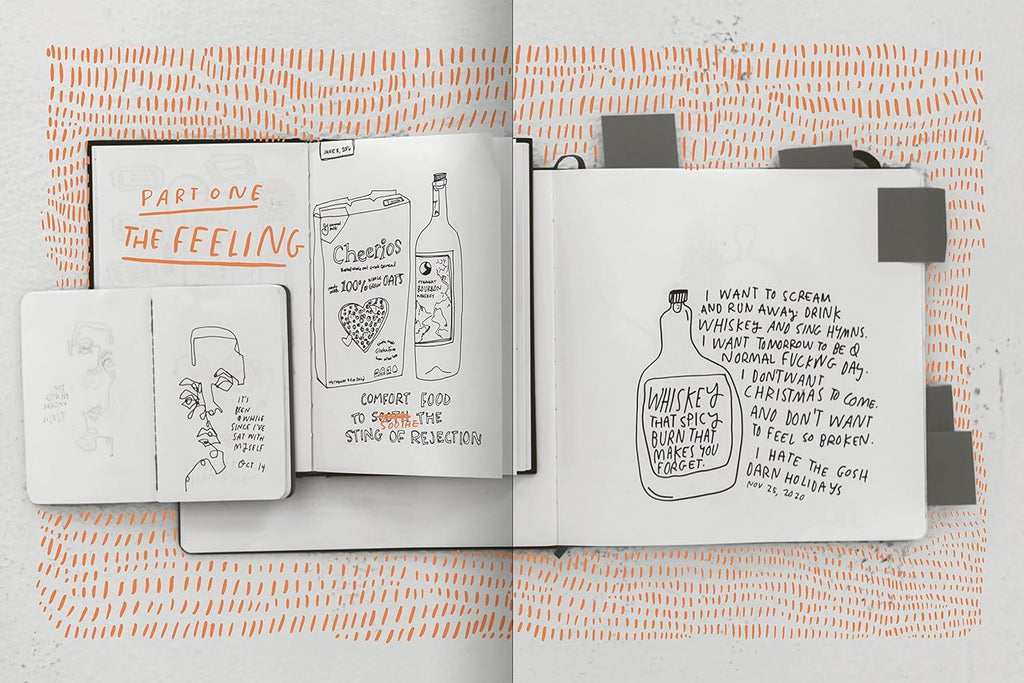 PART ONE
THE FEELING
JUNE 8, 2016
Cheerios
100% WHOLE GRAIN OATS
STRAIGHT
BOURBON
WHISKEY
COMFORT FOOD
TO SOOTH THE
SOOTHE
STING OF REJECTION
IT'S
BEEN
A WHILE
SINCE I'VE
SAT WITH
MYSELF
OCT 14
WHISKEY
THAT SPICY
BURN THAT
MAKES YOU
FORGET.
I WANT TO SCREAM
AND RUN AWAY DRINK
WHISKEY AND SING HYMNS.
I WANT TOMORROW TO BE A
NORMAL FUCKING DAY.
I DONT WANT
CHRISTMAS TO COME.
AND DON'T WANT
TO FEEL SO BROKEN.
I HATE THE GOSH
DARN HOLIDAYS
NOV 25, 2020